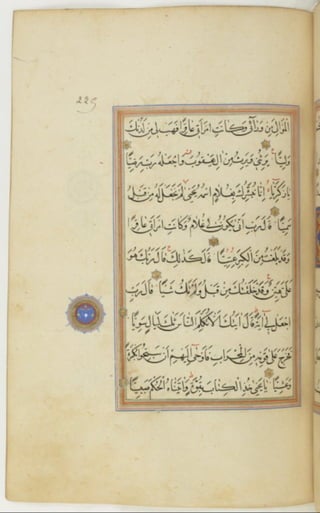 225
الْمَوَالِيَ مِنْ وَرَائِي وَكَانَتِ امْرَأَتِي عَاقِرًا فَهَبْ لِي مِنْ لَدُنْكَ
وَلِيًّا يَرِثُنِي وَيَرِثُ مِنْ اٰلِ يَعْقُوبَ وَاجْعَلْهُ رَبِّ رَضِيًّا
يَا زَكَرِيَّا إِنَّا نُبَشِّرُكَ بِغُلَامٍ اسْمُهُ يَحْيَى لَمْ نَجْعَلْ لَهُ مِنْ قَبْلُ
سَمِيًّا قَالَ رَبِّ أَنَّى يَكُونُ لِي غُلَامٌ وَكَانَتِ امْرَأَتِي عَاقِرًا
وَقَدْ بَلَغْتُ مِنَ الْكِبَرِ عِتِيًّا قَالَ كَذٰلِكَ قَالَ رَبُّكَ هُوَ
عَلَيَّ هَيِّنٌ وَقَدْ خَلَقْتُكَ مِنْ قَبْلُ وَلَمْ تَكُ شَيْئًا قَالَ رَبِّ
اجْعَلْ لِي اٰيَةً قَالَ اٰيَتُكَ أَلَّا تُكَلِّمَ النَّاسَ ثَلٰثَ لَيَالٍ سَوِيًّا
فَخَرَجَ عَلَى قَوْمِهِ مِنَ الْمِحْرَابِ فَأَوْحَى إِلَيْهِمْ أَنْ سَبِّحُوا بُكْرَةً
وَعَشِيًّا يَا يَحْيَى خُذِ الْكِتَابَ بِقُوَّةٍ وَاٰتَيْنَاهُ الْحُكْمَ صَبِيًّا